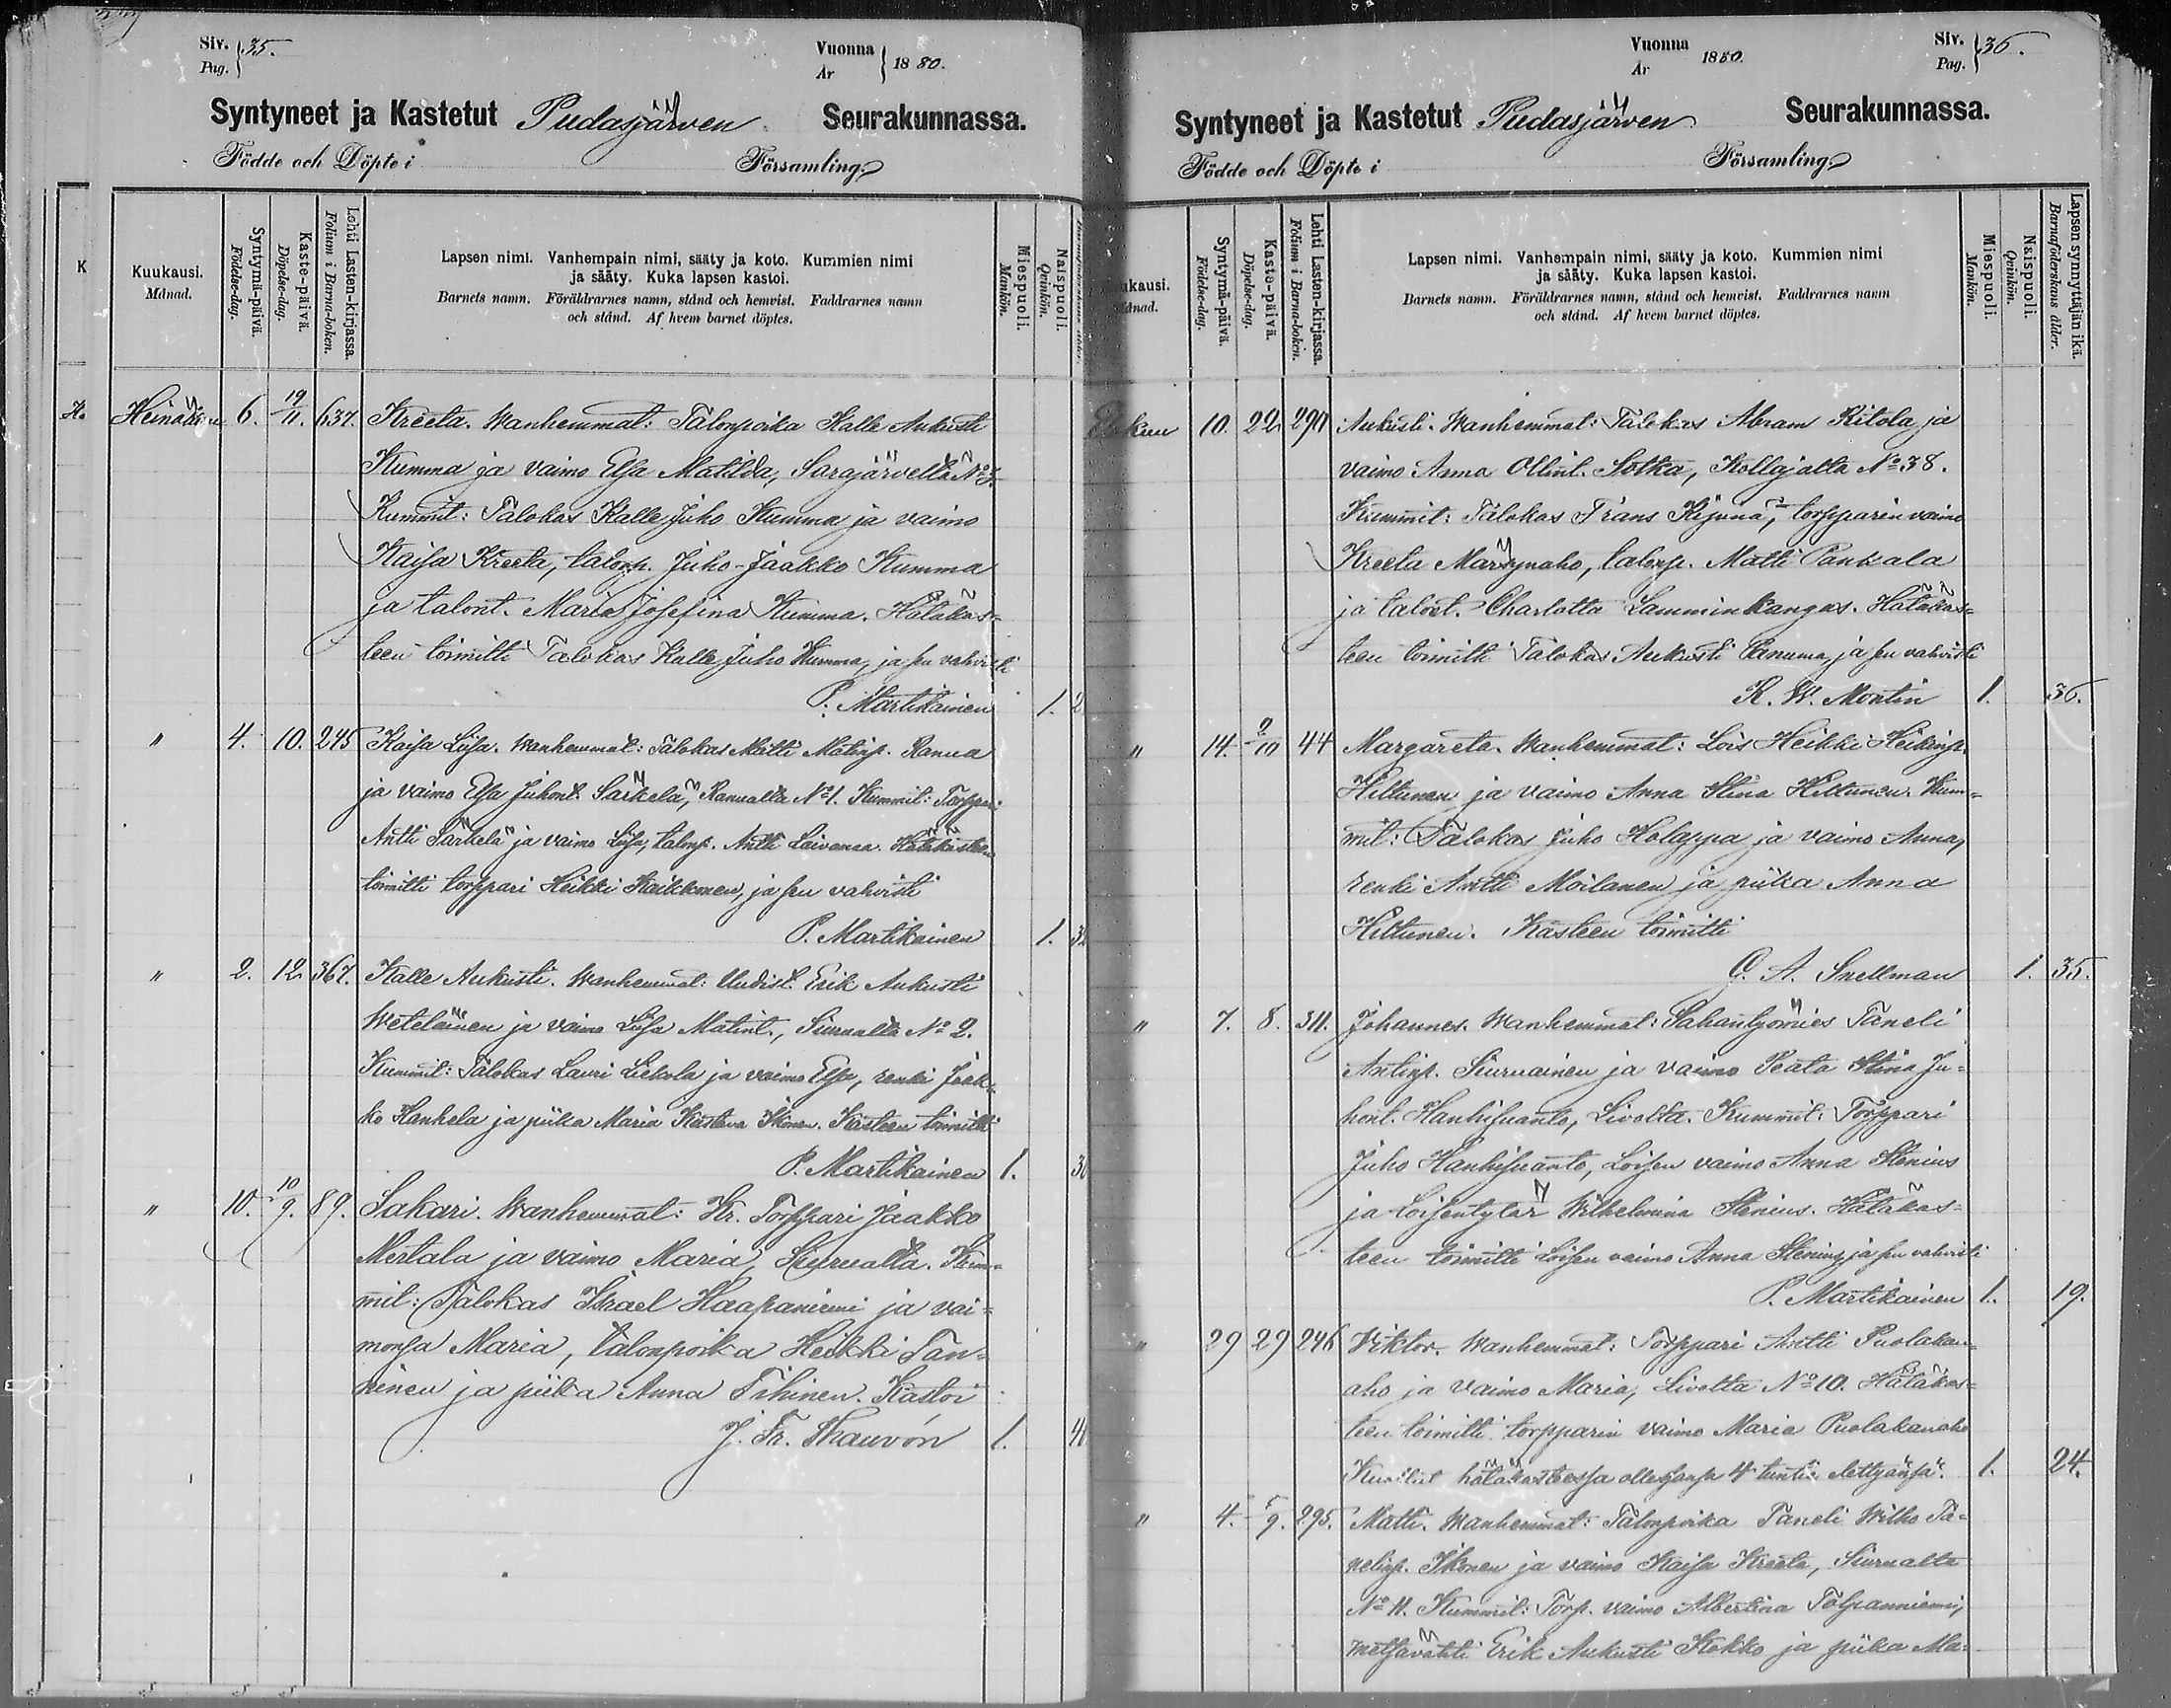 Siv. Pag. } 35.
Vuonna År } 1880.
Syntyneet ja Kastetut Pudasjärven Seurakunnassa.
Födde och Döpte i Församling.
K
Kuukausi. Månad.
Syntymä-päivä. Födelse-dag.
Kaste-päivä. Döpelse-dag.
Lehti Lasten-kirjassa. Folium i Barna-boken.
Lapsen nimi. Vanhempain nimi, sääty ja koto. Kummien nimi
ja sääty. Kuka lapsen kastoi.
Barnets namn. Föräldrarnes namn, stånd och hemvist. Faddrarnes namn
och stånd. Af hvem barnet döptes.
Miespuoli. Mankön.
Naispuoli. Qvinkön.
Heinäkuu 6. 19/11. 637. Kreeta. Wanhemmat: Talonpoika Kalle Aukusti
Kumma ja vaimo Elsa Matilda, Sarajärveltä No 3.
Kummit: Talokas Kalle Juho Kumma ja vaimo
Kaisa Kreeta, talonp. Juho-Jaakko Kumma
ja talont. Maria Josefina Kumma. Hätäkas=
teen toimitti Talokas Kalle Juho Kumma, ja sen vahvisti
P. Martikainen 1. 2
" 4. 10. 245 Kaisa Liisa. Wanhemmat: Talokas Matti Matinp. Ranua
ja vaimo Elsa Juhont. Särkelä, Ranualta No 1. Kummit: Torppari
Antti Särkelä ja vaimo Liisa, talonp. Antti Laivamaa. Hätäkasteen
toimitti torppari Heikki Kaikkonen, ja sen vahvisti
P. Martikainen 1. 32
" 2. 12. 367. Kalle Aukusti. Wanhemmat: Uudist. Erik Aukusti
Weteläinen ja vaimo Liisa Matint., Siurualta No 2.
Kummit: Talokas Lauri Liekola ja vaimo Elsa, renki Jaak=
ko Hankela ja piika Maria Kustava Ikonen. Kasteen toimitti
P. Martikainen 1. 30
" 10. 10/9. 89. Sakari. Wanhemmat: Kr. Torppari Jaakko
Mertala ja vaimo Maria, Siurualta. Kum=
mit: Talokas Israel Haapaniemi ja vai=
monsa Maria, talonpoika Heikki Tan=
ninen ja piika Anna Tihinen. Kastoi
J. Fr. Thauvón 1. 4
Siv. Pag. } 36.
Vuonna År 1880.
Syntyneet ja Kastetut Pudasjärven Seurakunnassa.
Födde och Döpte i Församling.
ukausi.
Syntymä-päivä. Födelse-dag.
Kaste-päivä. Döpelse-dag.
Lehti Lasten-kirjassa. Folium i Barna-boken.
Lapsen nimi. Vanhempain nimi, sääty ja koto. Kummien nimi
ja sääty. Kuka lapsen kastoi.
Barnets namn. Föräldrarnes namn, stånd och hemvist. Faddrarnes namn
och stånd. Af hvem barnet döptes.
Miespuoli. Mankön.
Naispuoli. Qvinkön.
Lapsen synnyttäjän ikä. Barnaföderskans ålder.
10. 22 290 Aukusti. Wanhemmat: Talokas Abram Ritola ja
vaimo Anna Ollint. Sotka, Kollajalta No 38.
Kummit: Talokas Frans Kijunä, torpparin vaimo
Kreeta Märsynaho, talonp. Matti Pankala
ja talont. Charlotta Lamminkangas. Hätäkas=
teen toimitti Talokas Aukusti Panuma, ja sen vahvisti
K. W. Montin 1. 36.
" 14. 2/10 44 Margareta. Wanhemmat: Lois Heikki Heikinp.
Hiltunen ja vaimo Anna Stina Hiltunen. Kum=
mit: Talokas Juho Holappa ja vaimo Anna,
renki Antti Moilanen ja piika Anna
Hiltunen. Kasteen toimitti
G. A. Snellman 1. 35.
" 7. 8. 311. Johannes. Wanhemmat: Sahantyömies Taneli
Antinp. Siuruainen ja vaimo Peata Stina Ju=
hont. Hanhisuanto, Livolta. Kummit: Torppari
Juho Hanhisuanto, Loisen vaimo Anna Stenius
ja Loisentytär Wilhelmina Stenius. Hätäkas=
teen toimitti Loisen vaimo Anna Stenius, ja sen vahvisti
P. Martikainen 1. 19.
" 29 29 246 Wiktor. Wanhemmat: Torppari Antti Puolakan=
aho ja vaimo Maria, Livolta No 10. Hätäkas=
teen toimitti torpparin vaimo Maria Puolakanaho
Kuollut hätäkasteessa ollessansa 4 tuntia elettyänsä. 1. 24.
" 4. 5/9. 295. Matti. Wanhemmat: Talonpoika Taneli Wilho Ta=
nelinp. Ikonen ja vaimo Kaisa Kreeta, Siurualta
No 11. Kummit: Torp. vaimo Albertina Tolpanniemi,
metsävahti Erik Aukusti Kokko ja piika Ma=